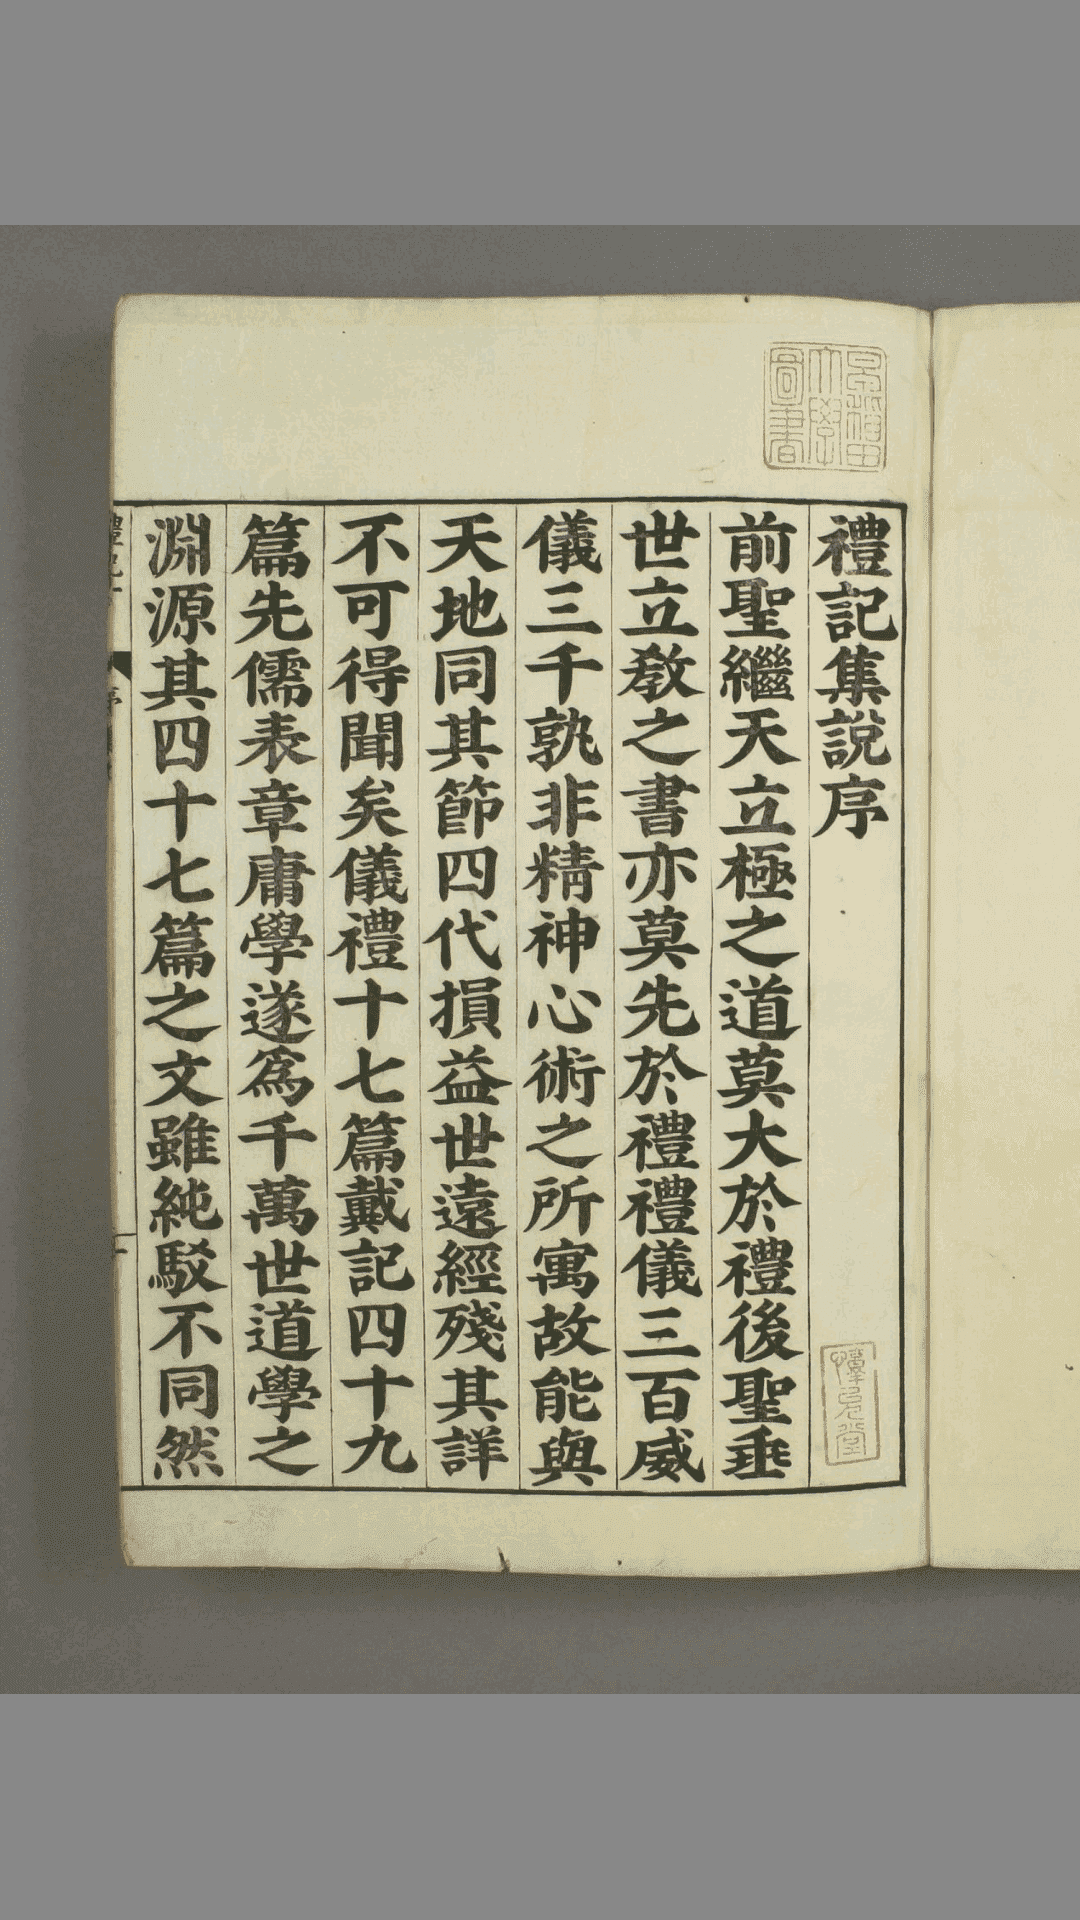 禮記集説序
前聖繼天立極之道莫大於禮後聖垂
世立敎之書亦莫先於禮禮儀三百威
儀三千孰非精神心術之所寓故能與
天地同其節四代損益世遠經殘其詳
不可得聞矣儀禮十七篇戴記四十九
篇先儒表章庸學遂爲千萬世道學之
淵源其四十七篇之文雖純駁不同然
早稲田
大學
圖書